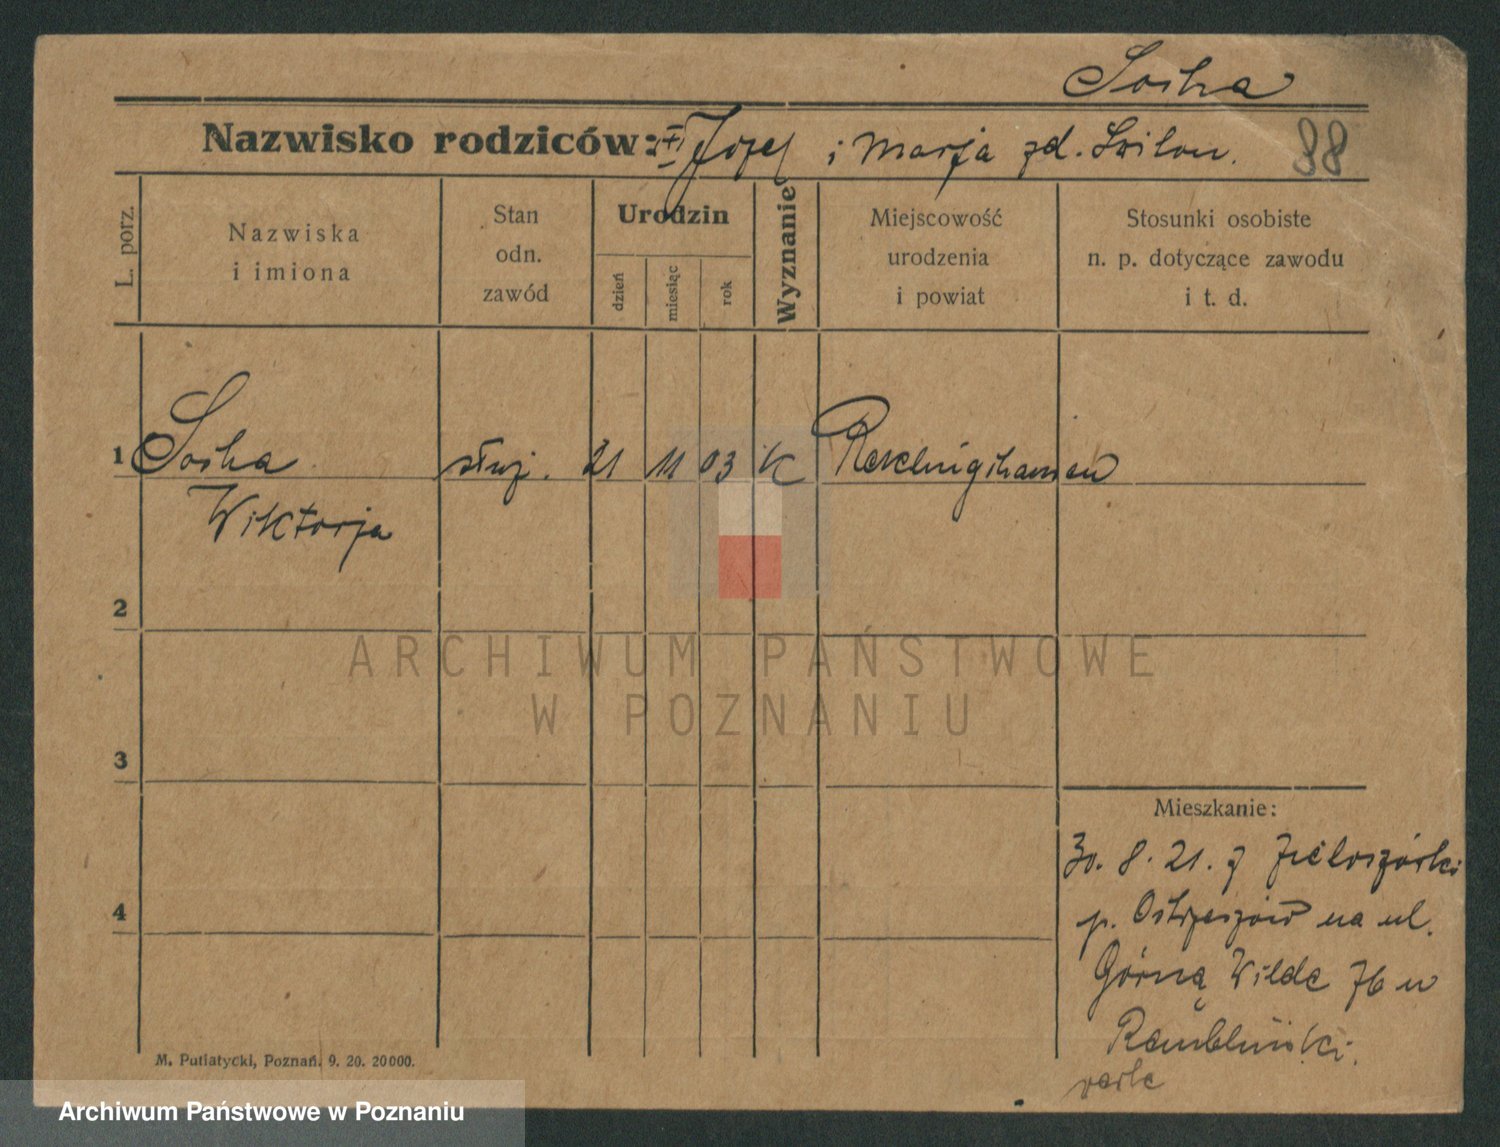 Socha
Nazwisko rodziców: Józef i Marja zd.
88
L. porz.
Nazwiska
i imiona
Stan
odn.
zawód
Urodzin
dzień
miesiąc
rok
Wyznanie
Miejscowość
urodzenia
i powiat
Stosunki osobiste
n. p. dotyczące zawodu
i t. d.
1 Socha służ. 21 11 03 K
Wiktorja
2
3
4
Mieszkanie:
30. 8. 21. z
p. Ostrzeszów na ul.
Górną Wildę 76 u
M. Putiatycki, Poznań. 9. 20. 20000.
ARCHIWUM PAŃSTWOWE
W POZNANIU
Archiwum Państwowe w Poznaniu